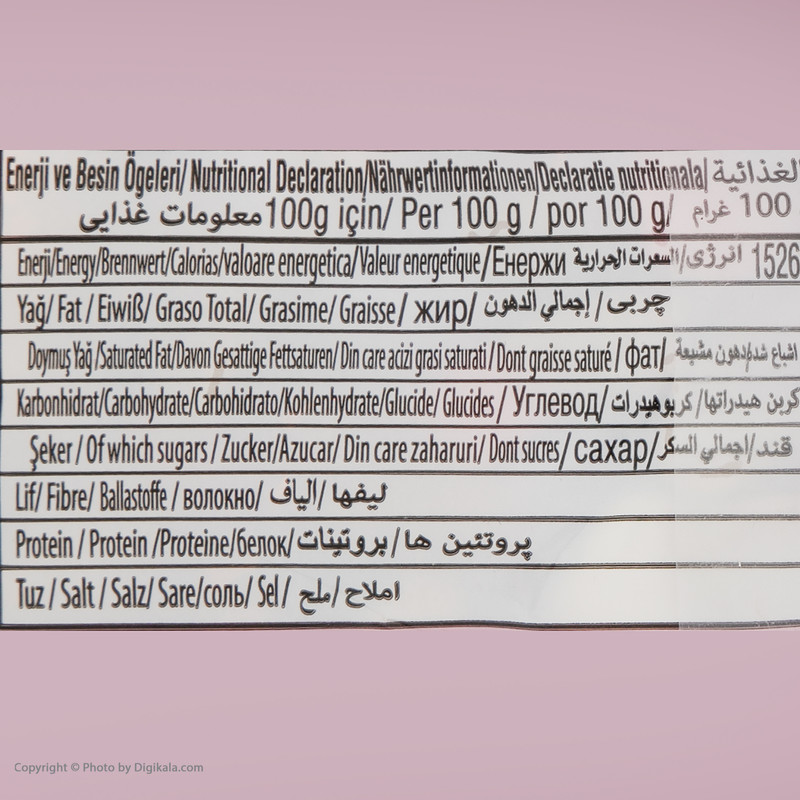 Enerji ve Besin Ögeleri/ Nutritional Declaration/Nährwertinformationen/Declaratie nutritionala/ الغذائية
معلومات غذایی 100g için/ Per 100 g / por 100 g/ 100 غرام
Enerji/Energy/Brennwert/Calorias/valoare energetica/Valeur energetique/Енержи السعرات الحرارية/انرژی 1526
Yağ/ Fat / Eiwiß/ Graso Total/ Grasime/ Graisse/ жир/ إجمالي الدهون / چربی
Doymuş Yağ /Saturated Fat/Davon Gesattige Fettsaturen/ Din care acizi grasi saturati / Dont graisse saturé / фат/ دهون مشبعة/اشباع شده
Karbonhidrat/Carbohydrate/Carbohidrato/Kohlenhydrate/Glucide/ Glucides / Углевод/ كربوهيدرات/کربن هیدراتها
Şeker / Of which sugars / Zucker/Azucar/ Din care zaharuri/ Dont sucres/ сахар/ إجمالي السكر/قند
Lif/ Fibre/ Ballastoffe / волокно/ ألياف/ لیفها
Protein / Protein /Proteine/белок/ بروتينات/ پروتئین ها
Tuz / Salt / Salz/ Sare/соль/ Sel/ ملح/ املاح
Copyright © Photo by Digikala.com